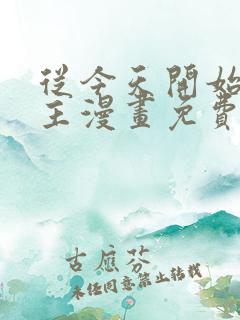 從今天開始
王漫畫免費
古應芬
未經同意禁止轉載